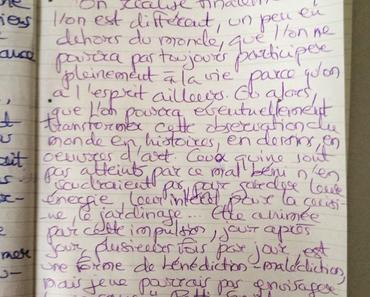 On réalise finalement
l'on est différent, un peu en
dehors du monde, que l'on ne
pourra pas toujours participer
pleinement à la vie parce qu'on
a l'esprit ailleurs. Et alors,
que l'on pourra éventuellement
transformer cette observation du
monde en histoires, en dessins, en
oeuvres d'art. Ceux qui ne sont
pas atteints par ce mal béni n'en
voudraient pas pour
énergie leur intérêt pour la cuisi-
ne, le jardinage... Être animée
par cette impulsion, jour après
jour plusieurs fois par jour est
une forme de bénédiction-malédiction,
mais je ne pourrais pas envisager